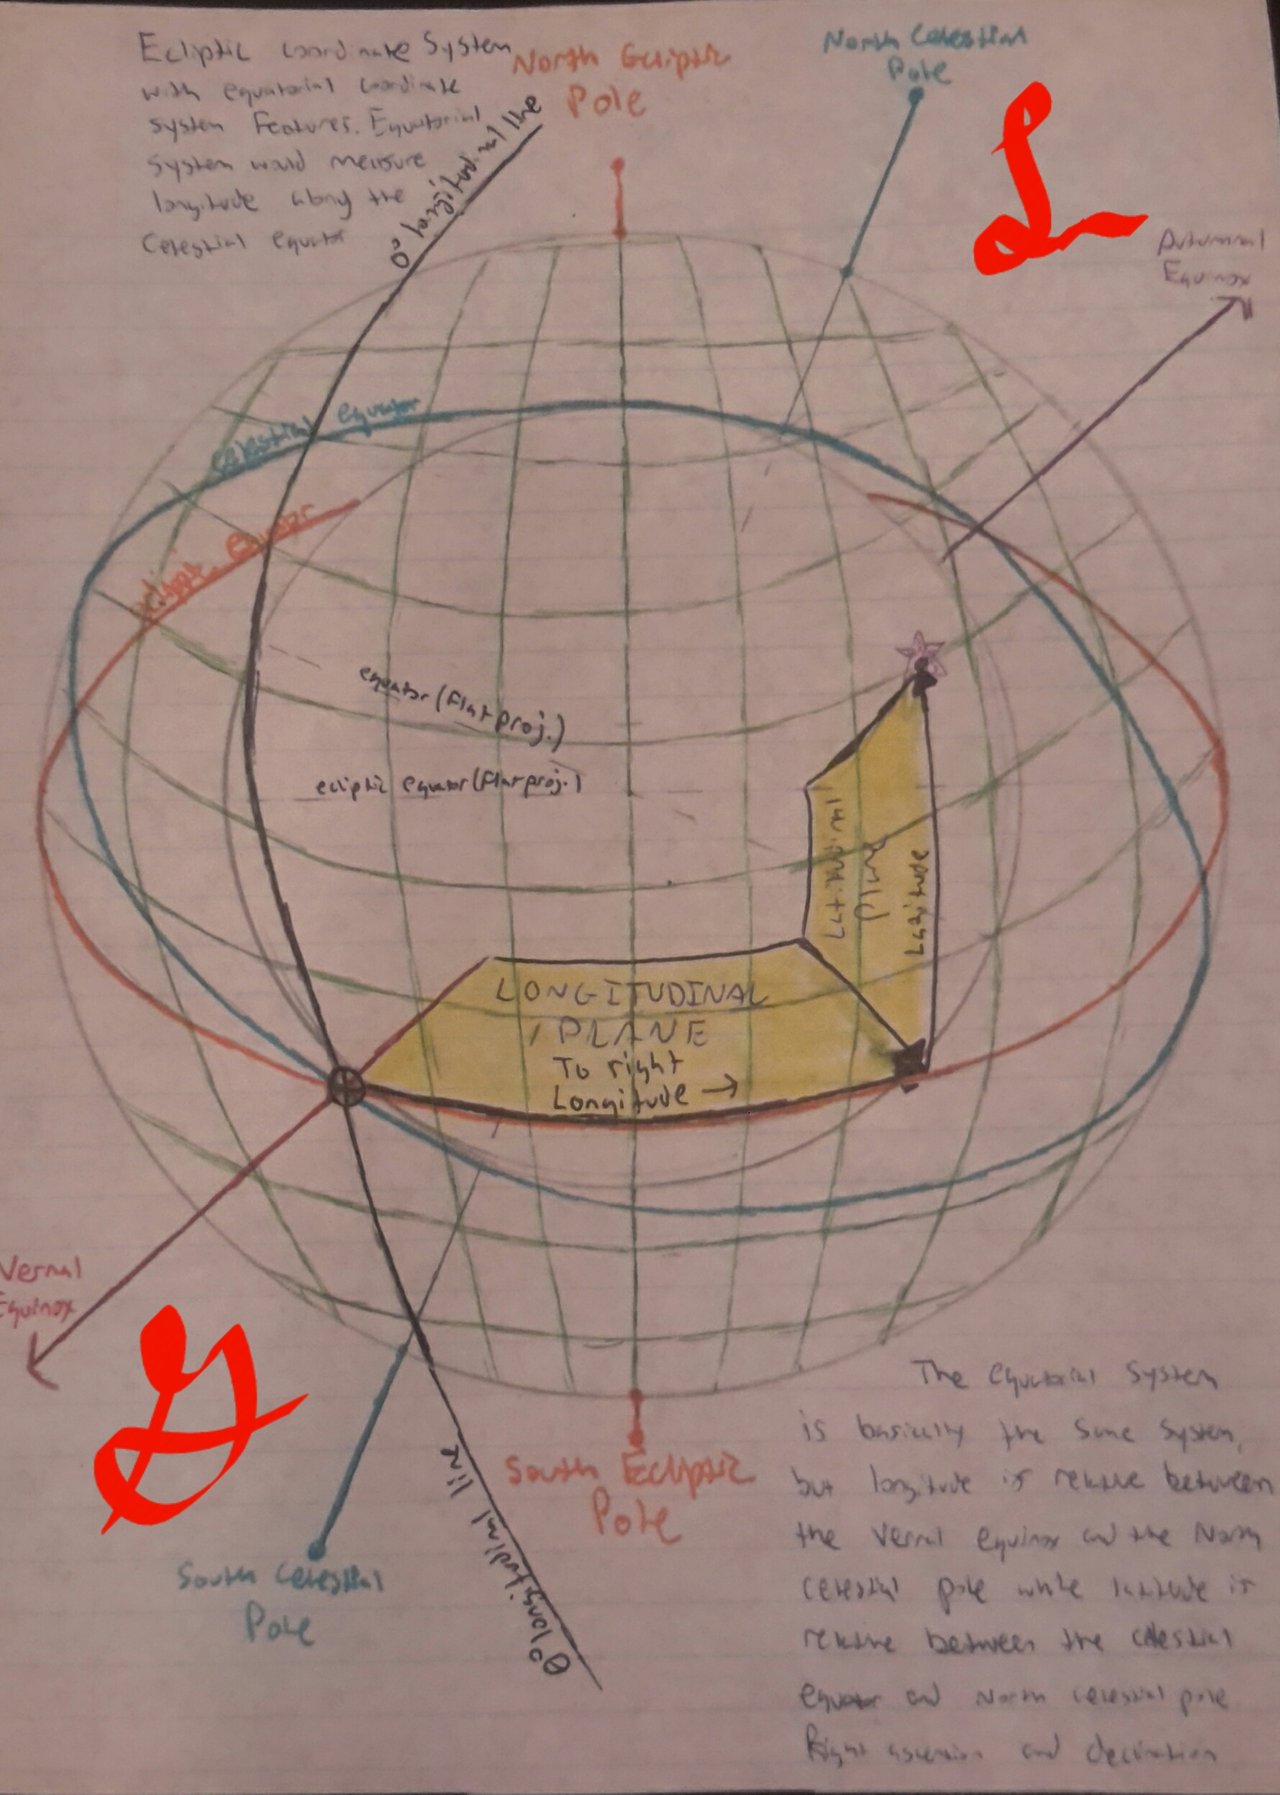 Ecliptic Coordinate System
with equatorial coordinate
system features. Equatorial
System would measure
longitude along the
Celestial equator
North Ecliptic
Pole
North Celestial
Pole
0° longitudinal line
Autumnal
Equinox
celestial equator
eclipt. equator
equator (Flat proj.)
ecliptic equator (flat proj.)
Latitudinal
Plane
Latitude
LONGITUDINAL
PLANE
To right
Longitude →
Vernal
Equinox
South Ecliptic
Pole
South Celestial
Pole
0° longitudinal line
The equatorial System
is basically the same system,
but longitude is relative between
the vernal equinox and the North
celestial pole while latitude is
relative between the celestial
equator and North celestial pole
Right ascension and declination